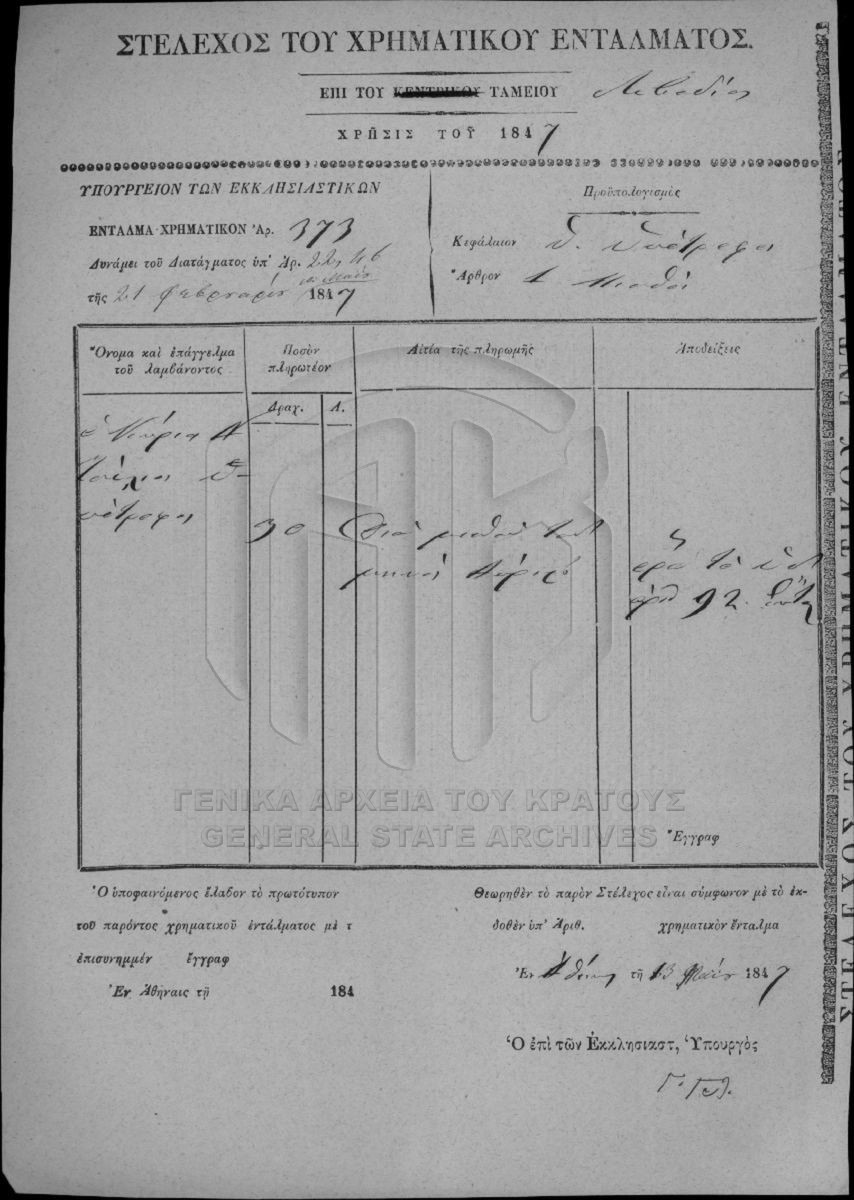 ΣΤΕΛΕΧΟΣ ΤΟΥ ΧΡΗΜΑΤΙΚΟΥ ΕΝΤΑΛΜΑΤΟΣ.
ΕΠΙ ΤΟΥ ΚΕΝΤΡΙΚΟΥ ΤΑΜΕΙΟΥ Λεβαδίας
ΧΡΗΣΙΣ ΤΟΥ͂ 1847
ΥΠΟΥΡΓΕΙΟΝ ΤΩΝ ΕΚΚΛΗΣΙΑΣΤΙΚΩΝ
ΕΝΤΑΛΜΑ ΧΡΗΜΑΤΙΚΟΝ Ἀρ. 373
Δυνάμει τοῦ Διατάγματος ὑπ' Ἀρ.
τῆς 21 Φεβρουαρίου 1847
Προϋπολογισμὸς
Κεφάλαιον Θ. Ὑπότροφοι
Ἄρθρον 1 Μισθοὶ
Ὄνομα καὶ ἐπάγγελμα
τοῦ λαμβάνοντος
Ποσὸν
πληρωτέον
Αἰτία τῆς πληρωμῆς
Ἀποδείξεις
Δραχ. Λ.
ὑπότροφος
30
Διὰ μισθόν του
μηνὸς
ὁρα τὸ
ἀρθ 92
Ἔγγραφ
Ὁ ὑποφαινόμενος ἔλαβον τὸ πρωτότυπον
τοῦ παρόντος χρηματικοῦ ἐντάλματος μὲ τ
ἐπισυνημμέν ἔγγραφ
Ἐν Ἀθήναις τῇ 184
Θεωρηθὲν τὸ παρὸν Στέλεχος εἶναι σύμφωνον μὲ τὸ ἐκ-
δοθὲν ὑπ' Ἀριθ. χρηματικὸν ἔνταλμα
Ἐν Ἀθήναις τῇ 13 Μαΐου 1847
Ὁ ἐπὶ τῶν Ἐκκλησιαστ, Ὑπουργὸς
ΣΤΕΛΕΧΟΣ ΤΟΥ ΧΡΗΜΑΤΙΚΟΥ ΕΝΤΑΛΜΑΤΟΝ
ΓΕΝΙΚΑ ΑΡΧΕΙΑ ΤΟΥ ΚΡΑΤΟΥΣ
GENERAL STATE ARCHIVES